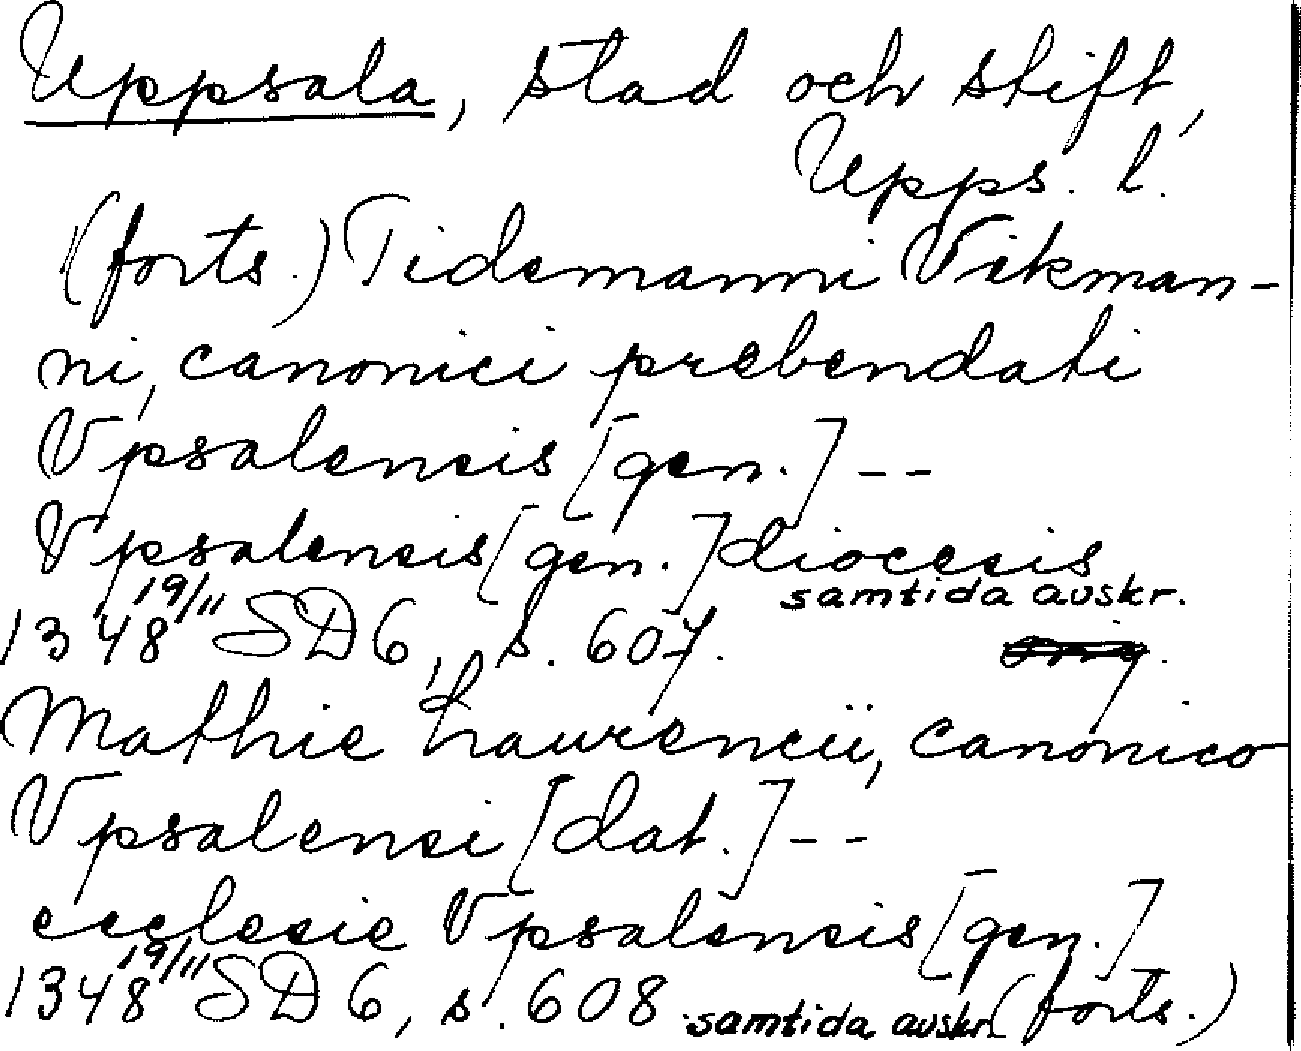 Uppsala, stad och stift,
Upps. l.
(forts.) Tidemanni Vikman-
ni, canonici prebendati
Vpsalensis [gen.] --
Vpsalensis [gen.] diocesis
1348 19/11 SD 6, s. 607. samtida avskr.
Mathie Laurencii, canonico
Vpsalensi [dat.] --
ecclesie Vpsalensis [gen.]
1348 19/11 SD 6, s. 608 samtida avskr. (forts.)